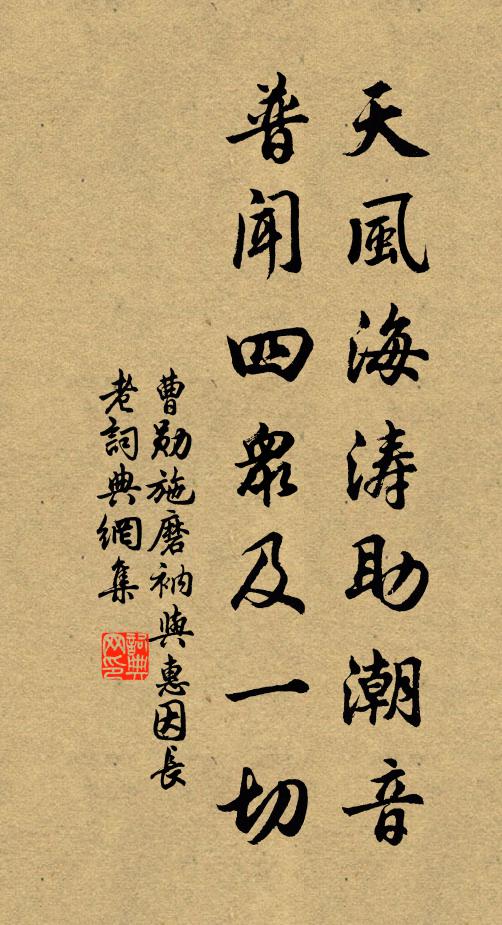 天風海濤助潮音
普聞四衆及一切
曹勛施磨衲與惠因長
老詞典網集
詞典网印